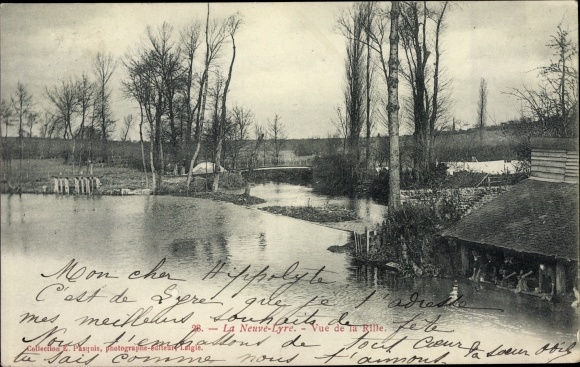 Mon cher Hippolyte
C'est de Lyre que je t'adresse
mes meilleurs souhaits de fête
28. — La Neuve-Lyre. — Vue de la Rille.
Nous t'embrassons de tout cœur
Collection E. Pasquis, photographe-éditeur, Laigle.
tu sais comme nous t'aimons ta sœur